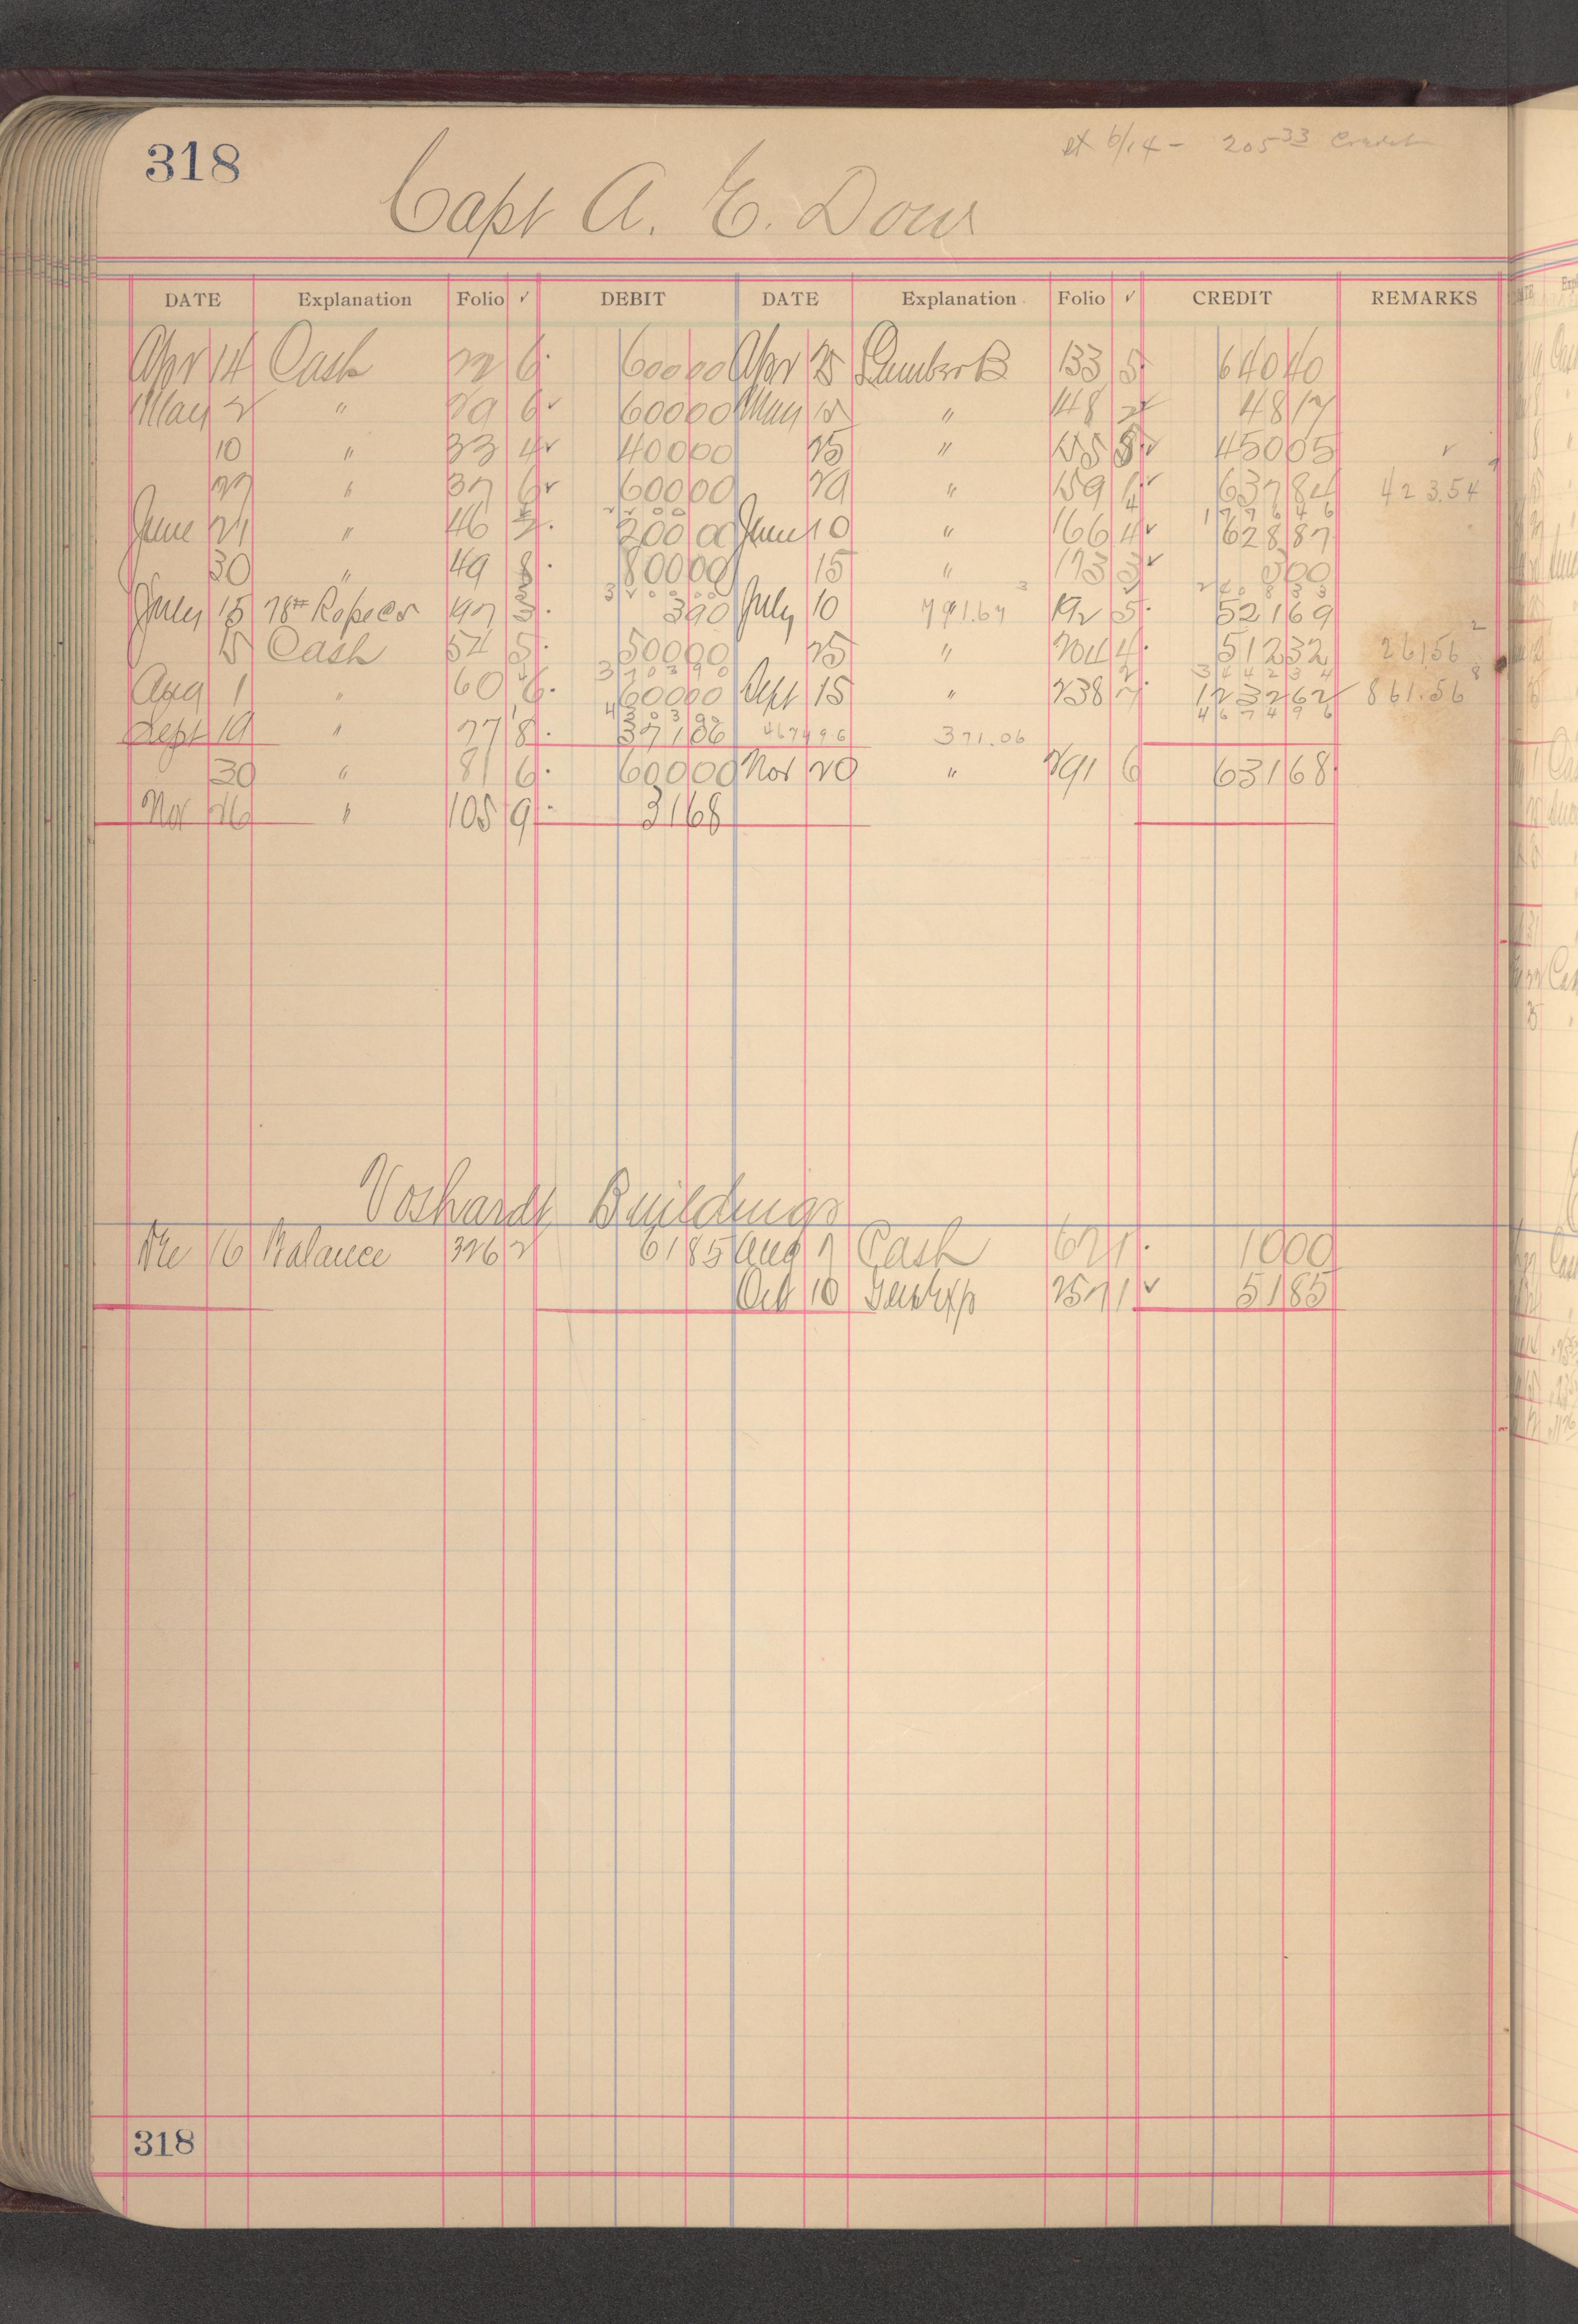 318
at 6/14 - 205 33 Credit
Capt A. E. Dow
DATE Explanation Folio ✓ DEBIT DATE Explanation Folio ✓ CREDIT REMARKS
Apr 14 Cash 22 6 600 00 Apr 25 Lumber B 133 5 640 40
May 2 " 29 6 ✓ 600 00 May 15 " 148 2 ✓ 48 17
10 " 33 4 ✓ 400 00 25 " 155 8 ✓ 450 05 ✓
27 " 37 6 ✓ 600 00 29 " 159 4 ✓ 637 84 423.54
2200 00 1776 46
June 24 " 46 2 200 00 June 10 " 166 4 ✓ 628 87
30 " 49 8 800 00 15 " 173 3 ✓ 3 00
3200 00 2408 33
July 15 78# Rope 197 3 3 90 July 10 791.67 192 5 521 69
15 Cash 54 5 500 00 25 " 204 4 512 32 261.56
3703 90 3442 34
Aug 1 " 60 6 600 00 Sept 15 " 238 7 1232 62 861.56
4303 90 4674 96
Sept 19 " 77 8 371 06 4674 96 371.06
30 " 81 6 600 00 Nov 20 " 291 6 631 68
Nov 26 " 105 9 31 68
Voshardt Buildings
16 Balance 326 2 61 85 Aug 7 Cash 62 1 10 00
Oct 10 257 1 ✓ 51 85
318